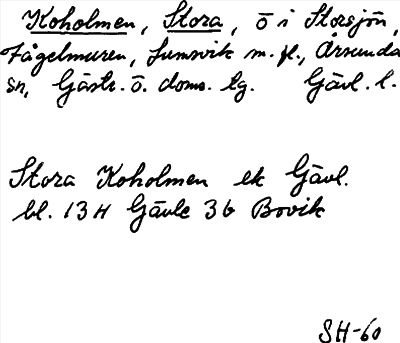 Koholmen, Stora, ö i Storsjön,
Fågelmuren, Sumsvik m. fl., Årsunda
sn, Gästr. ö. doms. tg. Gävl. l.
Stora Koholmen ek Gävl.
bl. 13 H Gävle 3b Bovik
SH-60